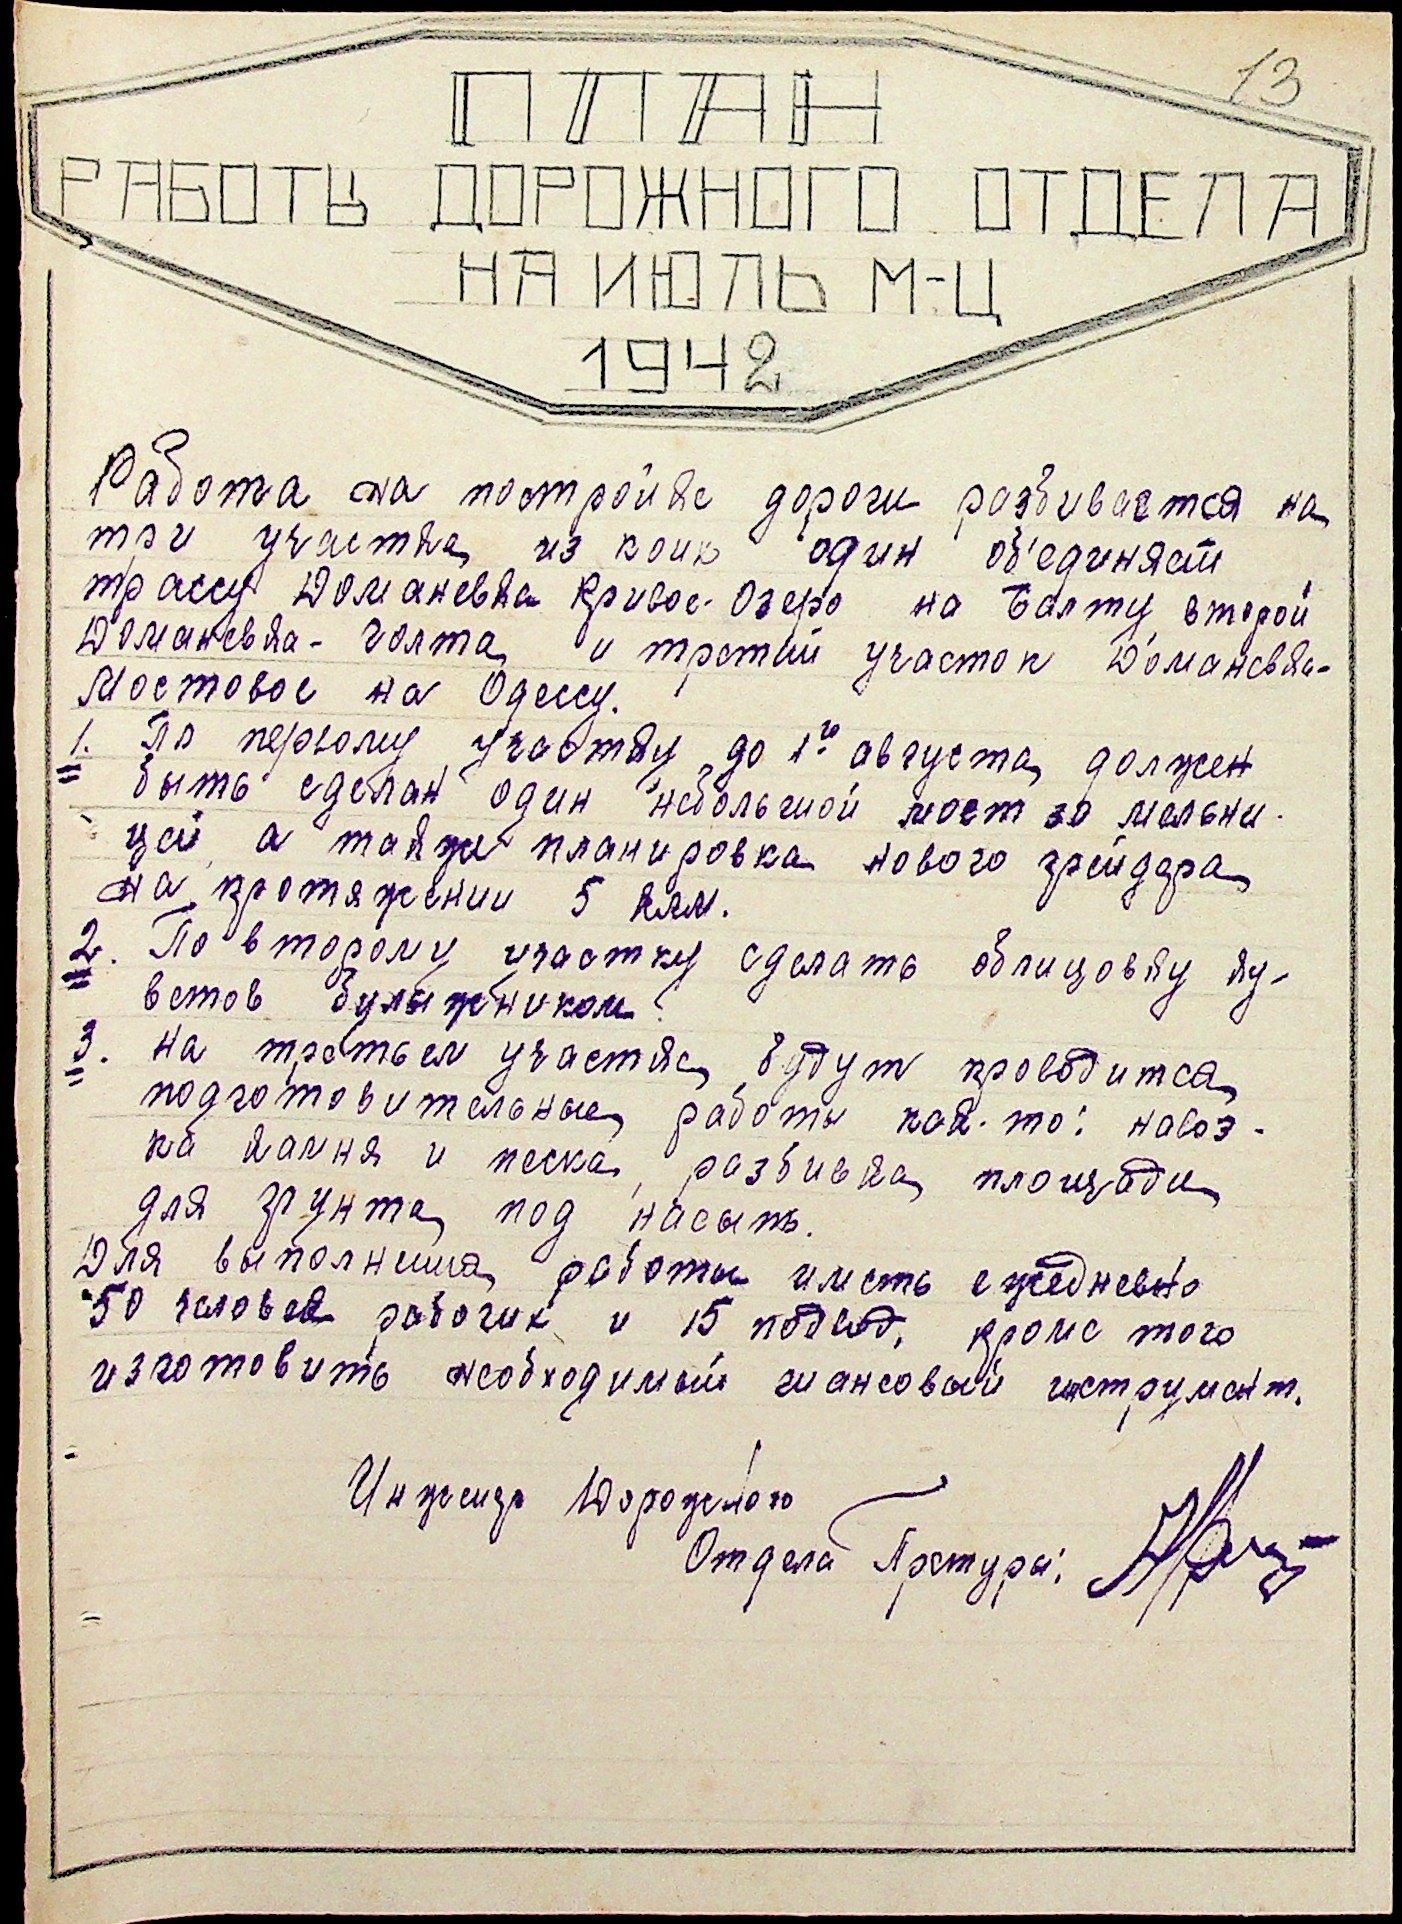 13
ПЛАН
РАБОТЫ ДОРОЖНОГО ОТДЕЛА
НА ИЮЛЬ М-Ц
1942
Работа на постройке дороги разбивается на
три участка из коих один об'единяет
трассу Доманевка Кривое-Озеро на Балту второй
Доманевка-Голта и третий участок Доманевка-
Мостовое на Одессу.
1. По первому участку до 1го августа должен
быть сделан один небольшой мост за мельни-
цей а также планировка нового грейдера
на протяжении 5 клм.
2. По второму участку сделать облицовку ку-
ветов булыжником.
3. На третьем участке будут проводится
подготовительные работы как-то: навоз-
ка камня и песка, разбивка площади
для грунта под насыпь.
Для выполнения работы иметь ежедневно
50 человек рабочих и 15 подвод, кроме того
изготовить необходимый шансовый инструмент.
Инженер Дорожного
Отдела Претуры: